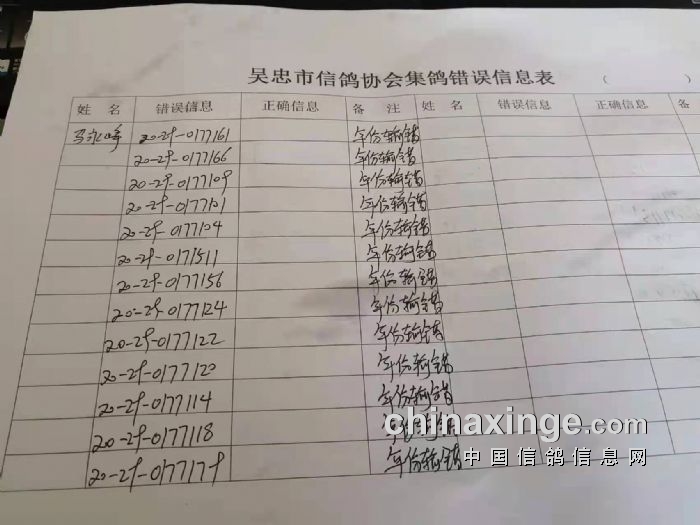 吴忠市信鸽协会集鸽错误信息表 （ ）
姓 名 错误信息 正确信息 备 注 姓 名 错误信息 正确信息 备
马永峰 20-29-0177161 年份输错
20-29-0177166 年份输错
20-29-0177109 年份输错
20-29-0177101 年份输错
20-29-0177104 年份输错
20-29-0171511 年份输错
20-29-0177156 年份输错
20-29-0177124 年份输错
20-29-0177122 年份输错
20-29-0177120 年份输错
20-29-0177114 年份输错
20-29-0177118 年份输错
20-29-0177179 年份输错
chinaxinge.com
中国信鸽信息网